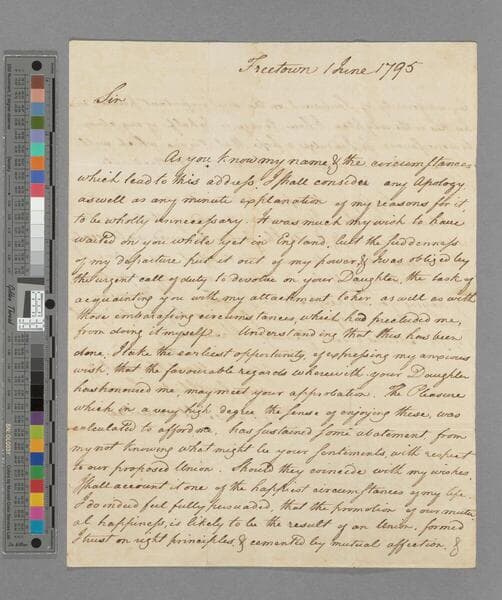 Freetown 1 June 1795
Sir
As you know my name & the circumstances
which lead to this address, I shall consider any Apology
as well as any minute explanation of my reasons for it
to be wholly unnecessary. It was much my wish to have
waited on you while yet in England, but the suddenness
of my departure put it out of my power, & I was obliged by
the urgent call of duty to devolve on your Daughter, the task of
acquainting you with my attachment to her, as well as with
those embarassing circumstances, which had precluded me,
from doing it myself. Understanding that this has been
done, I take the earliest opportunity, of expressing my anxious
wish, that the favourable regards wherewith your Daughter
has honoured me, may meet your approbation. The Pleasure
which in a very high degree, the sense of enjoying these, was
calculated to afford me, has sustained some abatement, from
my not knowing what might be your sentiments, with respect
to our proposed Union. Should they coincide with my wishes
I shall account it one of the happiest circumstances of my life.
I do indeed feel fully persuaded, that the promotion of our mutu-
al happiness, is likely to be the result of an Union, formed
I trust on right principles, & cemented by mutual affection, &